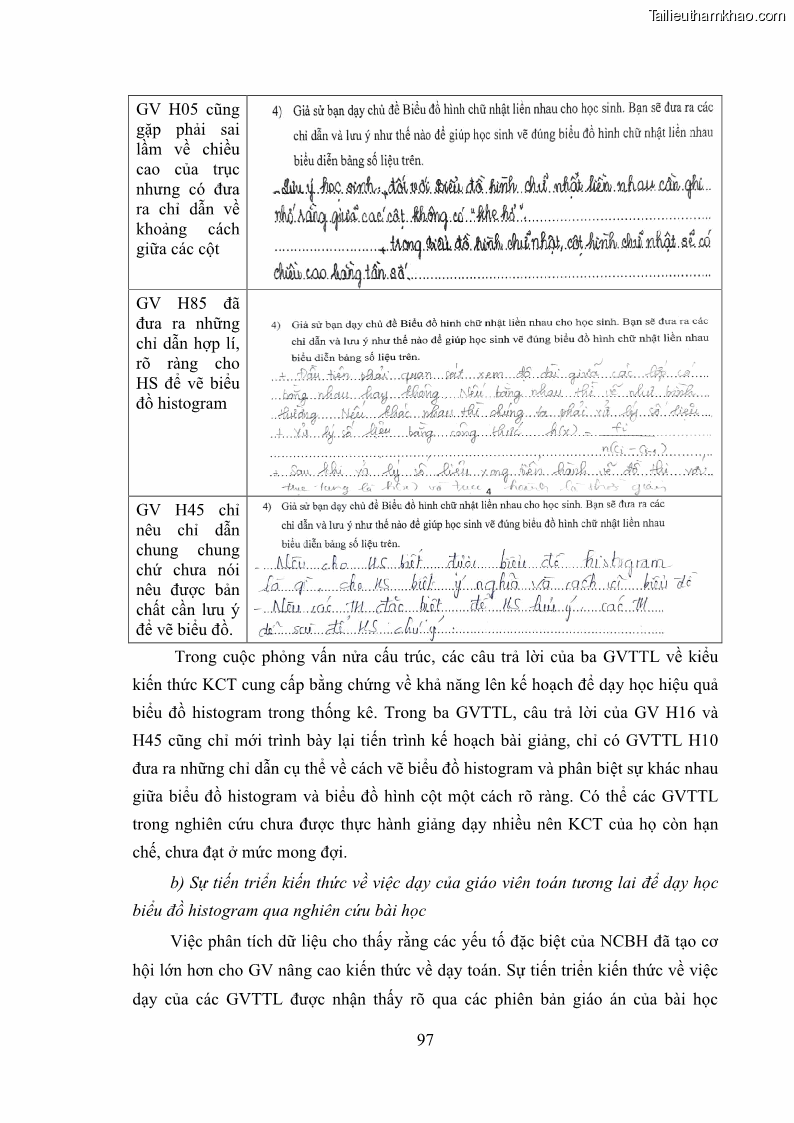 Tailieuthamkhao.com
GV H05 cũng
gặp phải sai
lầm về chiều
cao của trục
nhưng có đưa
ra chỉ dẫn về
khoảng cách
giữa các cột
4) Giả sử bạn dạy chủ đề Biểu đồ hình chữ nhật liền nhau cho học sinh. Bạn sẽ đưa ra các
chỉ dẫn và lưu ý như thế nào để giúp học sinh vẽ đúng biểu đồ hình chữ nhật liền nhau
biểu diễn bảng số liệu trên.
- Lưu ý học sinh: + đối với biểu đồ hình chữ nhật liền nhau cần ghi
nhớ rằng giữa các cột không có "khe hở".
+ trong biểu đồ hình chữ nhật, cột hình chữ nhật sẽ có
chiều cao bằng tần số.
GV H85 đã
đưa ra những
chỉ dẫn hợp lí,
rõ ràng cho
HS để vẽ biểu
đồ histogram
4) Giả sử bạn dạy chủ đề Biểu đồ hình chữ nhật liền nhau cho học sinh. Bạn sẽ đưa ra các
chỉ dẫn và lưu ý như thế nào để giúp học sinh vẽ đúng biểu đồ hình chữ nhật liền nhau
biểu diễn bảng số liệu trên.
+ Đầu tiên phải quan sát xem độ dài giữa các lớp có
bằng nhau hay không. Nếu bằng nhau thì vẽ như bình
thường. Nếu khác nhau thì chúng ta phải xử lý số liệu
+ Xử lý số liệu bằng công thức h(x) = fi
+ Sau khi xử lý số liệu xong tiến hành vẽ đồ thị với
4
GV H45 chỉ
nêu chỉ dẫn
chung chung
chứ chưa nói
nêu được bản
chất cần lưu ý
để vẽ biểu đồ.
4) Giả sử bạn dạy chủ đề Biểu đồ hình chữ nhật liền nhau cho học sinh. Bạn sẽ đưa ra các
chỉ dẫn và lưu ý như thế nào để giúp học sinh vẽ đúng biểu đồ hình chữ nhật liền nhau
biểu diễn bảng số liệu trên.
- Nêu cho HS biết được biểu đồ histogram
là gì, cho HS biết ý nghĩa và cách vẽ biểu đồ
- Nêu các TH đặc biệt để HS lưu ý, các TH
dễ sai để HS chú ý.
Trong cuộc phỏng vấn nửa cấu trúc, các câu trả lời của ba GVTTL về kiểu
kiến thức KCT cung cấp bằng chứng về khả năng lên kế hoạch để dạy học hiệu quả
biểu đồ histogram trong thống kê. Trong ba GVTTL, câu trả lời của GV H16 và
H45 cũng chỉ mới trình bày lại tiến trình kế hoạch bài giảng, chỉ có GVTTL H10
đưa ra những chỉ dẫn cụ thể về cách vẽ biểu đồ histogram và phân biệt sự khác nhau
giữa biểu đồ histogram và biểu đồ hình cột một cách rõ ràng. Có thể các GVTTL
trong nghiên cứu chưa được thực hành giảng dạy nhiều nên KCT của họ còn hạn
chế, chưa đạt ở mức mong đợi.
b) Sự tiến triển kiến thức về việc dạy của giáo viên toán tương lai để dạy học
biểu đồ histogram qua nghiên cứu bài học
Việc phân tích dữ liệu cho thấy rằng các yếu tố đặc biệt của NCBH đã tạo cơ
hội lớn hơn cho GV nâng cao kiến thức về dạy toán. Sự tiến triển kiến thức về việc
dạy của các GVTTL được nhận thấy rõ qua các phiên bản giáo án của bài học
97